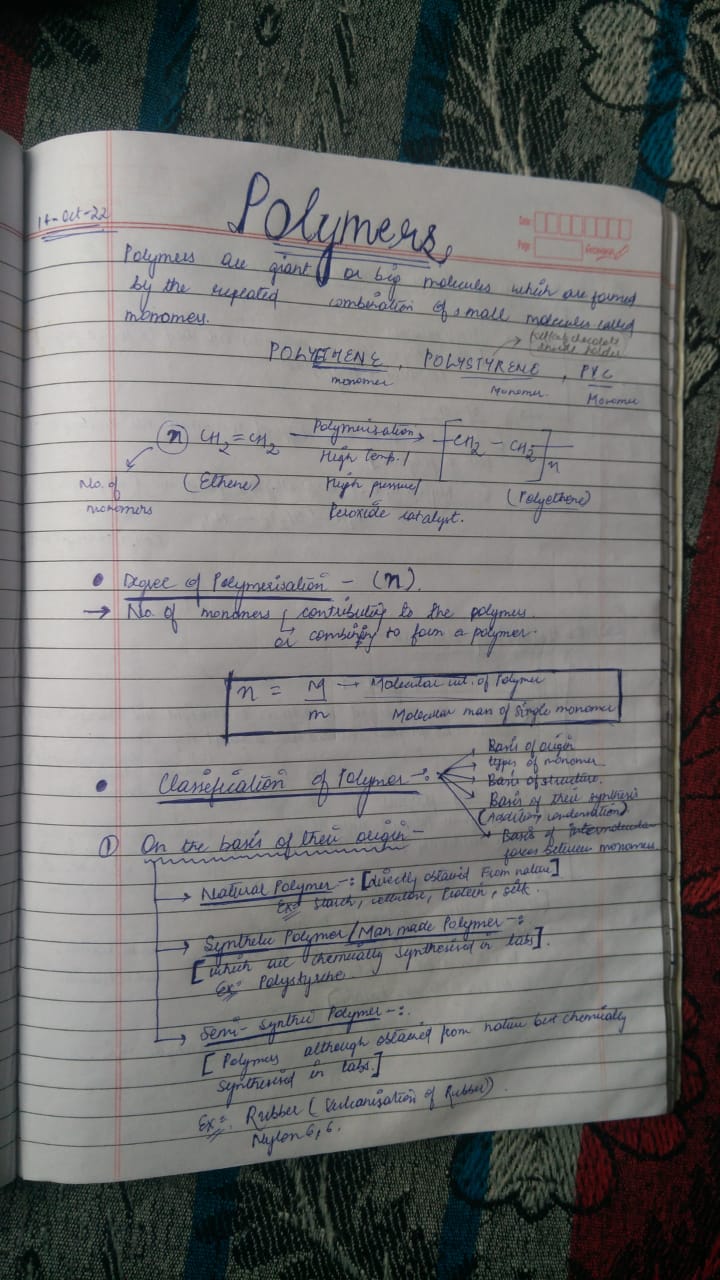 Polymers
14-Oct-22
Date:
Page:
Polymers are giant or big molecules which are formed
by the repeated combination of small molecules called
monomers.
POLYETHENE, POLYSTYRENE, PVC
monomer Monomer Monomer
n CH2=CH2 Polymerisation → [CH2 - CH2]n
High temp./
No. of monomers (Ethene) High pressure/ (Polyethene)
Peroxide catalyst.
• Degree of Polymerisation - (n).
→ No. of monomers contributing to the polymers
or combining to form a polymer.
n = M → Molecular wt. of Polymer
m Molecular mass of Single monomer
• Classification of Polymer -:
Basis of origin
types of monomer
Basis of structure.
Basis of their synthesis
(Addition, condensation)
Basis of intermolecular
forces between monomers
① On the basis of their origin -
→ Natural Polymer -: [directly obtained from nature]
Ex: Starch, cellulose, Protein, silk.
→ Synthetic Polymer/Man made Polymer -:
[which are chemically synthesised in labs].
Ex: Polystyrene.
→ Semi-Synthic Polymer -:
[Polymers although obtained from nature but chemically
synthesised in labs.]
Ex: Rubber (Vulcanisation of Rubber)
Nylon 6,6.